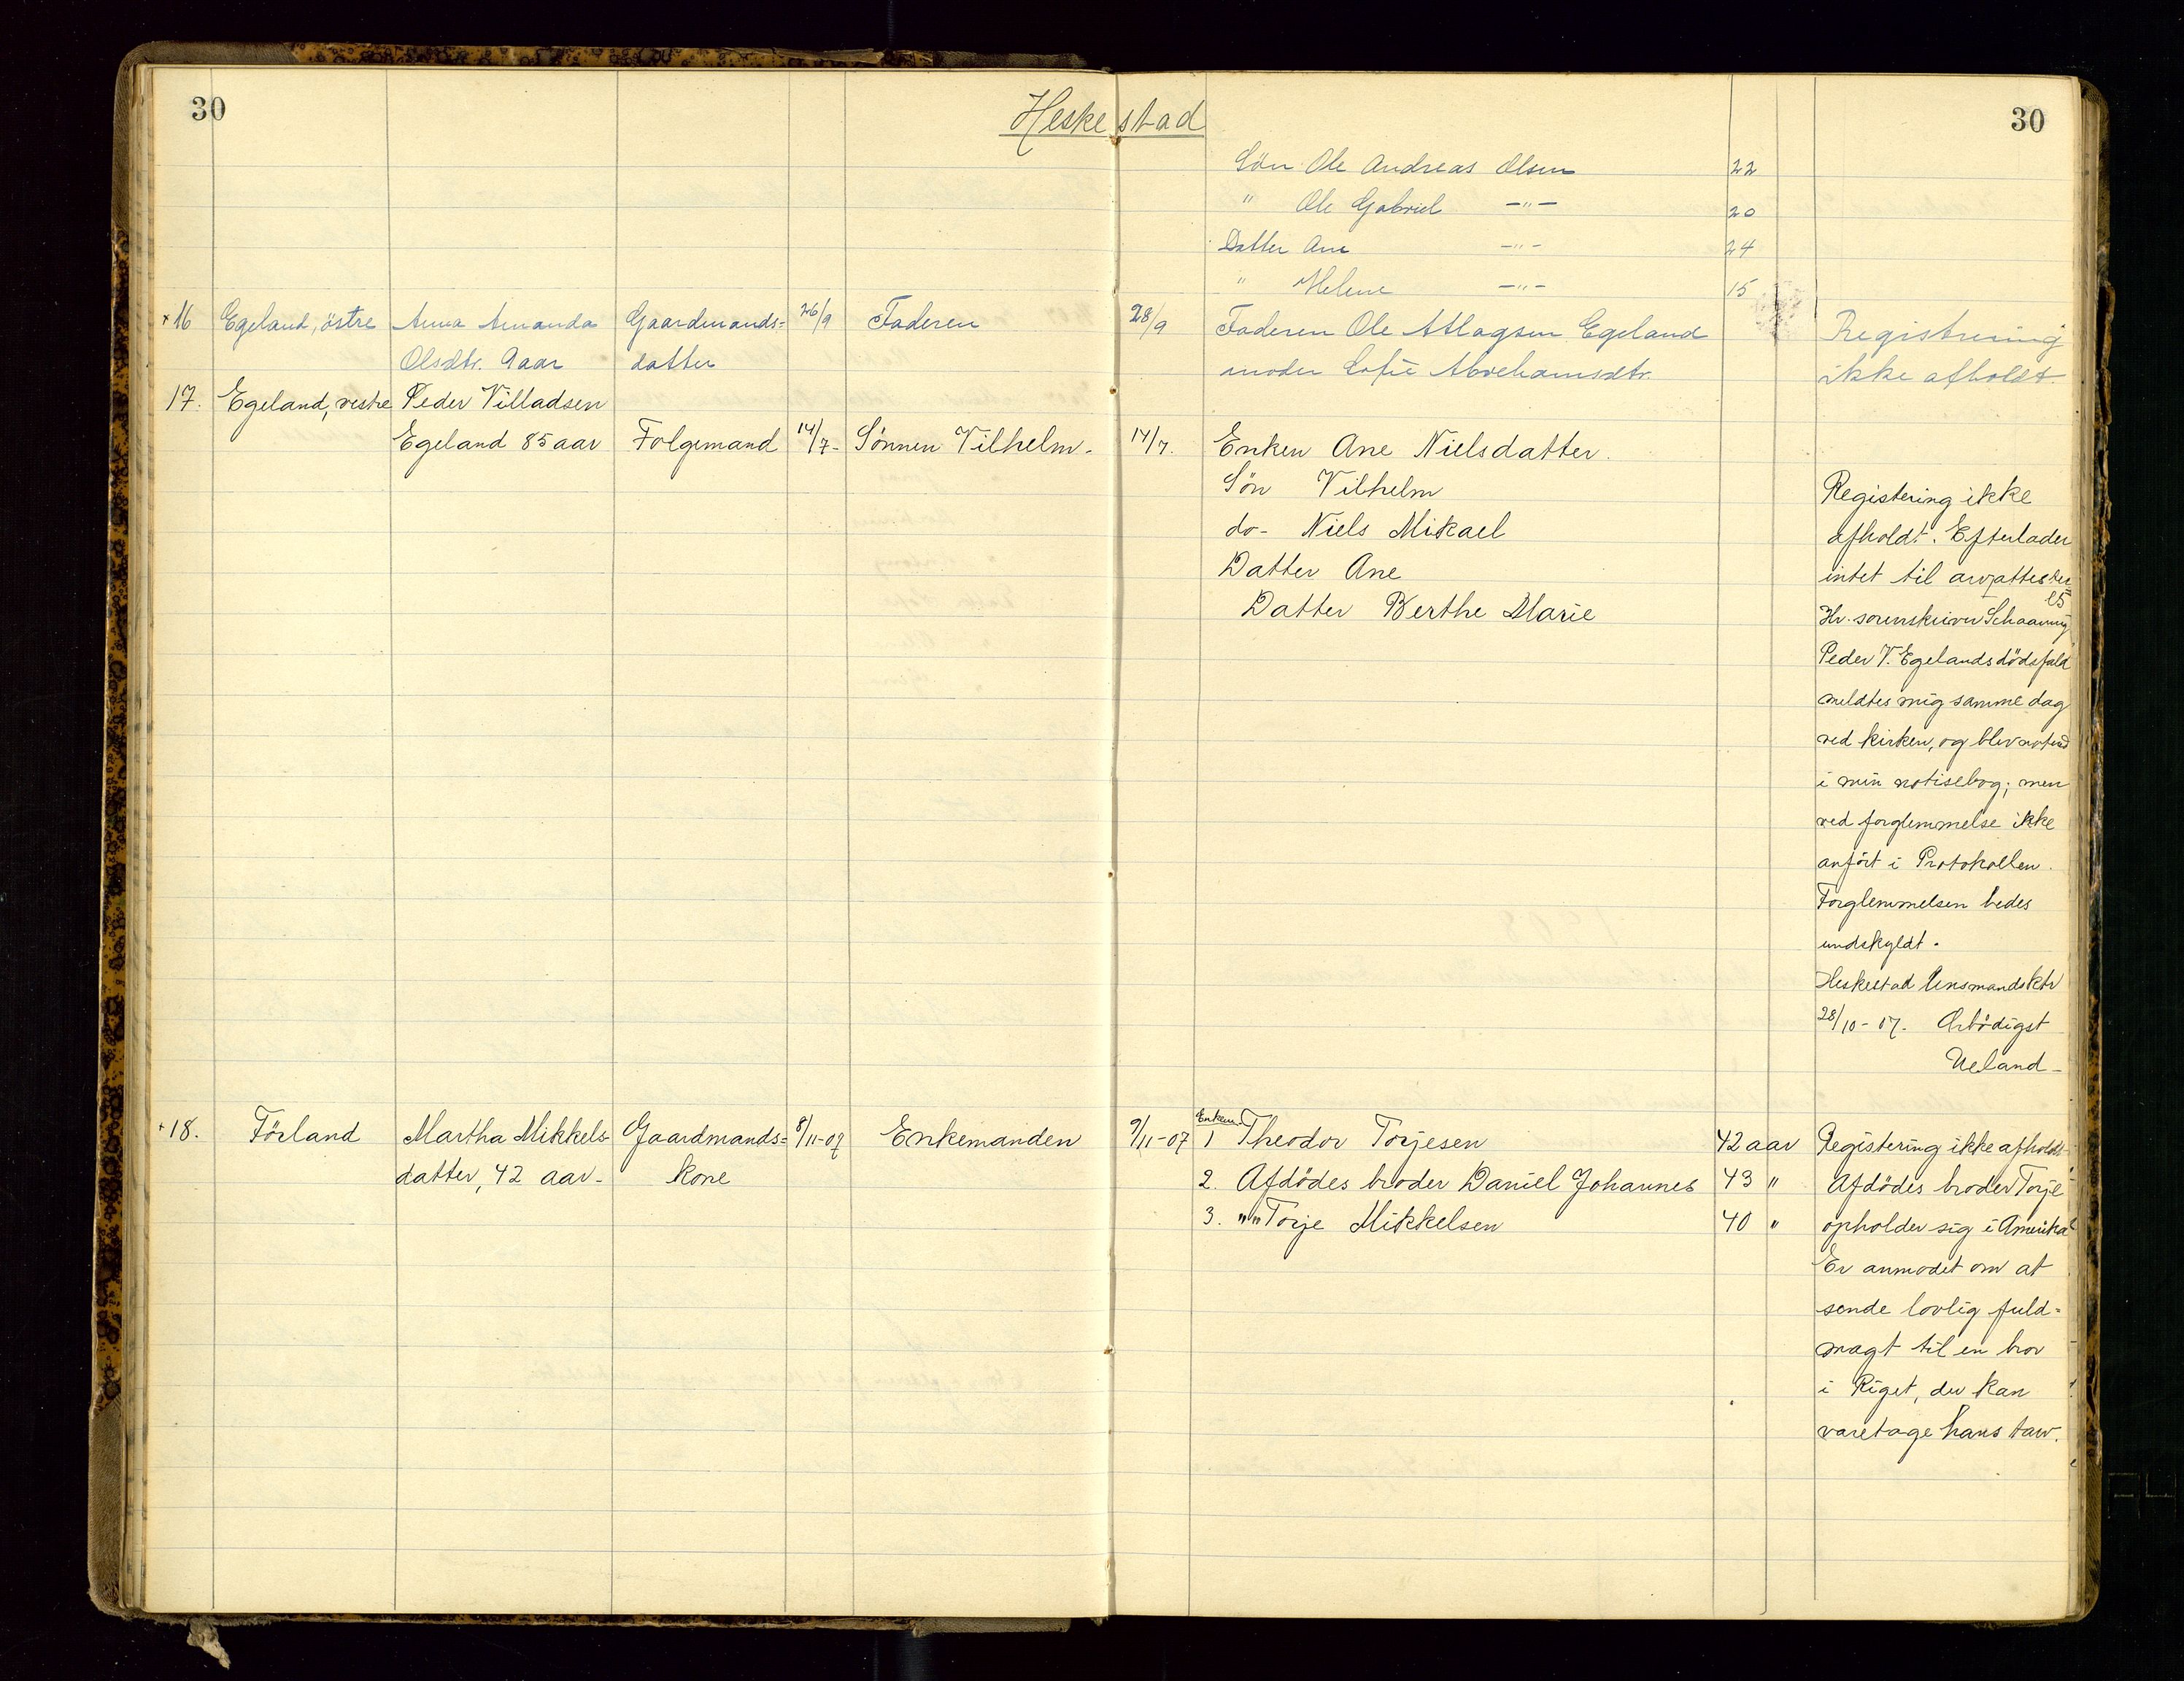 30
Heskestad
30
Sön Ole Andreas Olsen 22
" Ole Gabriel —"— 20
Datter Ane —"— 24
" Helene —"— 15
+16 Egeland, östre Anna Amanda Gaardmands= 26/9 Faderen 28/9 Faderen Ole Atlagsen Egeland Registrering
Olsdtr. 9 aar datter moder Sofie Abrehamsdtr. ikke afholdt.
17. Egeland, vestre Peder Villadsen
Egeland 85 aar Folgemand 14/7- Sönnen Vilhelm. 14/7. Enken Ane Nielsdatter.
Sön Vilhelm Registering ikke
do- Niels Mikael afholdt. Efterlader
Datter Ane intet til
Datter Berthe Marie Hr. sorenskriver Schaanning
Peder V. Egelands dödsfald
meldtes mig samme dag
ved kirken, og blev notered
i min notisebog; men
ved forglemmelse ikke
anfört i Protokollen.
Forglemmelsen bedes
undskyldt.
Heskestad lensmandsktr
28/10-07. Ærbödigst
Ueland-
+18. Förland Martha Mikkels- Gaardmands= 8/11-07 Enkemanden 9/11-07 1 Enkem. Theodor Torjesen 42 aar Registering ikke afholdt
datter, 42 aar- kone 2. Afdödes broder Daniel Johannes 43 " Afdödes broder Torje
3. " " Torje Mikkelsen 40 " opholder sig i Amerika
Er anmodet om at
sende lovlig fuld=
magt til en bror
i Riget, der kan
varetage hans tarv.